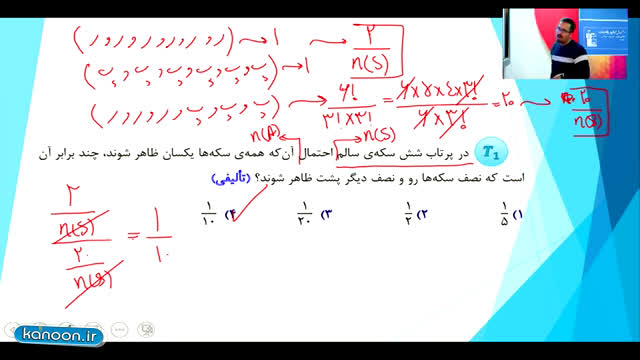 (ر و ر و ر و ر و ر و ر و) → ۱ → ۲/n(S)
(پ و پ و پ و پ و پ و پ) → ۱
(پ و پ و پ و ر و ر و ر) → ۶!/۳!×۳! = ۶×۵×۴×۳!/۶×۳! = ۲۰ → ۲۰/n(S)
n(A) n(S)
T1 در پرتاب شش سکه‌ی سالم احتمال آن‌که همه‌ی سکه‌ها یکسان ظاهر شوند، چند برابر آن
است که نصف سکه‌ها رو و نصف دیگر پشت ظاهر شوند؟ (تألیفی)
۱) 1/5 ۲) 1/2 ۳) 1/20 ۴) 1/10
۲/n(S) / ۲۰/n(S) = ۱/۱۰
kanoon.ir